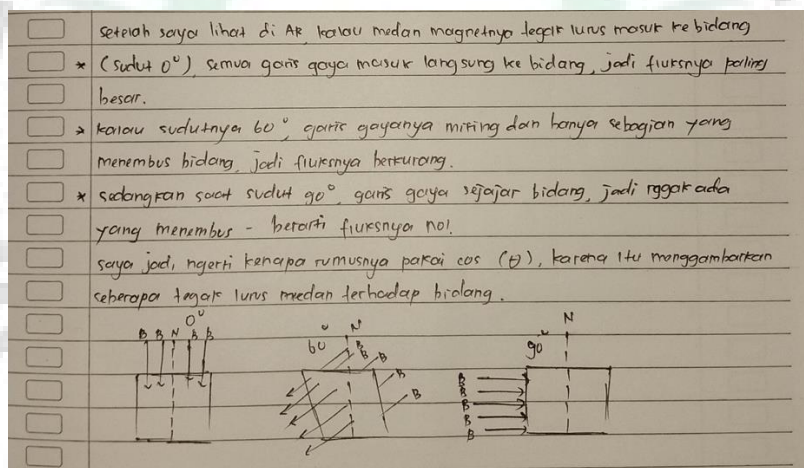 setelah saya lihat di AR, kalau medan magnetnya tegak lurus masuk ke bidang
* (sudut 0°), semua garis gaya masuk langsung ke bidang, jadi fluksnya paling
besar.
* kalau sudutnya 60°, garis gayanya miring dan hanya sebagian yang
menembus bidang, jadi fluksnya berkurang.
* sedangkan saat sudut 90°, garis gaya sejajar bidang, jadi nggak ada
yang menembus - berarti fluksnya nol.
saya jadi, ngerti kenapa rumusnya pakai cos (θ), karena itu menggambarkan
seberapa tegak lurus medan terhadap bidang.
0°
B B N B B
60°
N
B
B
B
B
B
90°
N
B
B
B
B
B